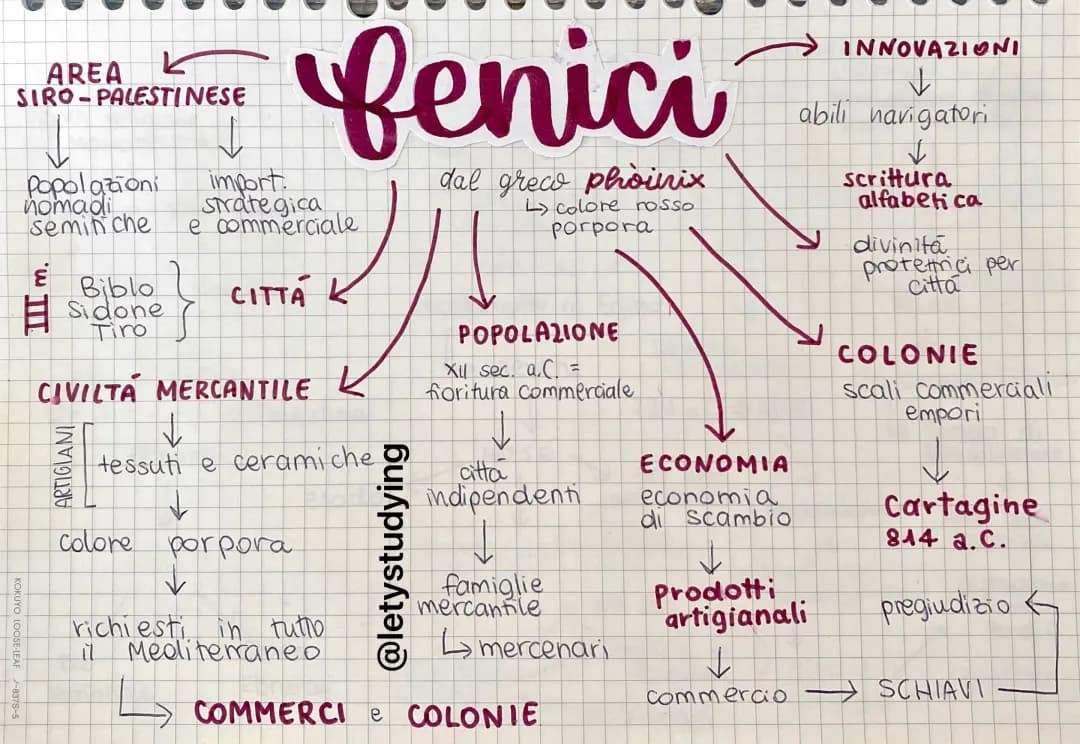 fenici
AREA
SIRO-PALESTINESE
popolazioni
nomadi
semitiche
import.
strategica
e commerciale
dal greco phòinix
↳ colore rosso
porpora
INNOVAZIONI
abili navigatori
scrittura
alfabetica
divinità
protettrici per
città
III m.
Biblo
Sidone
Tiro
CITTÀ
CIVILTÀ MERCANTILE
ARTIGIANI
tessuti e ceramiche
colore porpora
richiesti in tutto
il Mediterraneo
COMMERCI e COLONIE
POPOLAZIONE
XII sec. a.C. =
fioritura commerciale
città
indipendenti
famiglie
mercantile
↳ mercenari
ECONOMIA
economia
di scambio
Prodotti
artigianali
commercio → SCHIAVI
pregiudizio
COLONIE
scali commerciali
empori
Cartagine
814 a.C.
@letystudying
KOKUYO LOOSE-LEAF ノ-837S-5